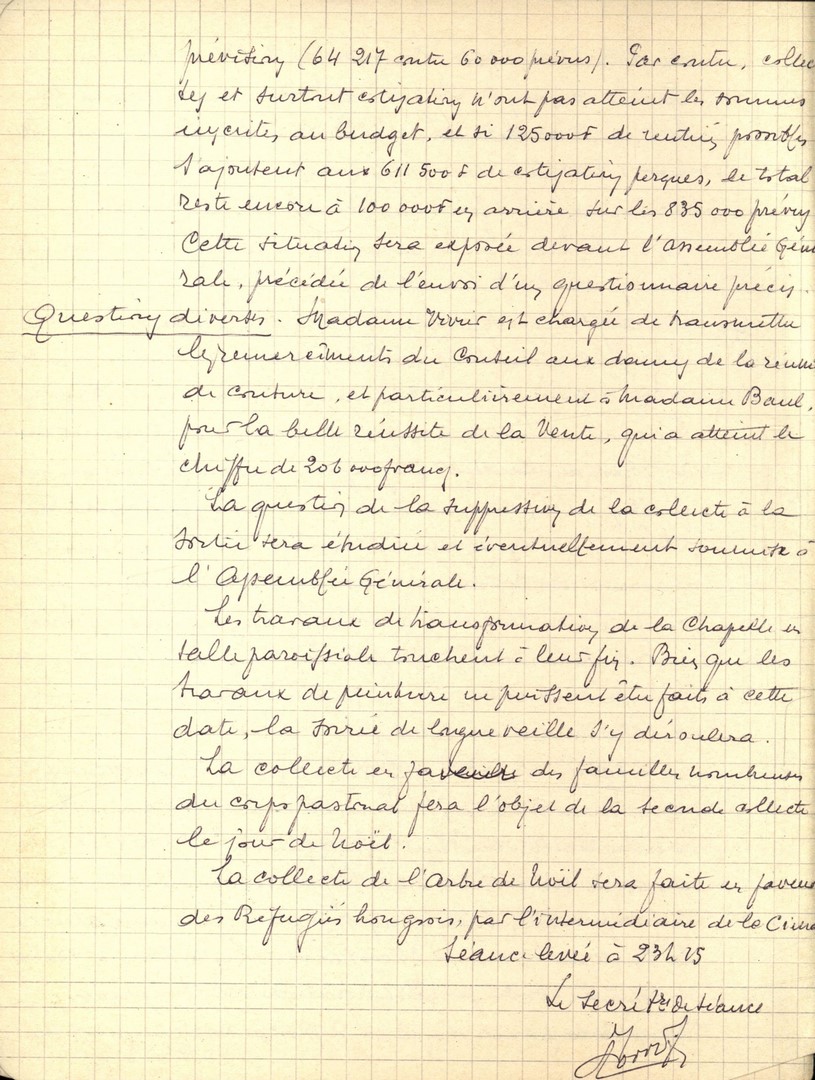 prévisions (64 217 contre 60 000 prévus). Par contre, collec
tes et surtout cotisations n'ont pas atteint les sommes
inscrites au budget, et si 125000F de rentrées possibles
s'ajoutent aux 611 500F de cotisations perçues, le total
reste encore à 100 000F en arrière sur les 835 000 prévus
Cette situation sera exposée devant l'Assemblée Géné
rale, précédée de l'envoi d'un questionnaire précis.
Questions diverses. Madame Vivier est chargée de transmettre
les remerciements du Conseil aux dames de la réuni
de couture, et particulièrement à Madame Baul,
pour la belle réussite de la Vente, qui a atteint le
chiffre de 206 000 francs.
La question de la suppression de la collecte à la
sortie sera étudiée et éventuellement soumise à
l'Assemblée Générale.
Les travaux de transformation de la Chapelle en
salle paroissiale touchent à leur fin. Bien que les
travaux de peinture ne puissent être faits à cette
date, la soirée de longue veille s'y déroulera.
La collecte en faveur des familles nombreuses
du corps pastoral fera l'objet de la seconde collecte
le jour de Noël.
La collecte de l'Arbre de Noël sera faite en faveur
des Réfugiés hongrois, par l'intermédiaire de la Cima
Séance levée à 23h15
Le Secrétre de séance